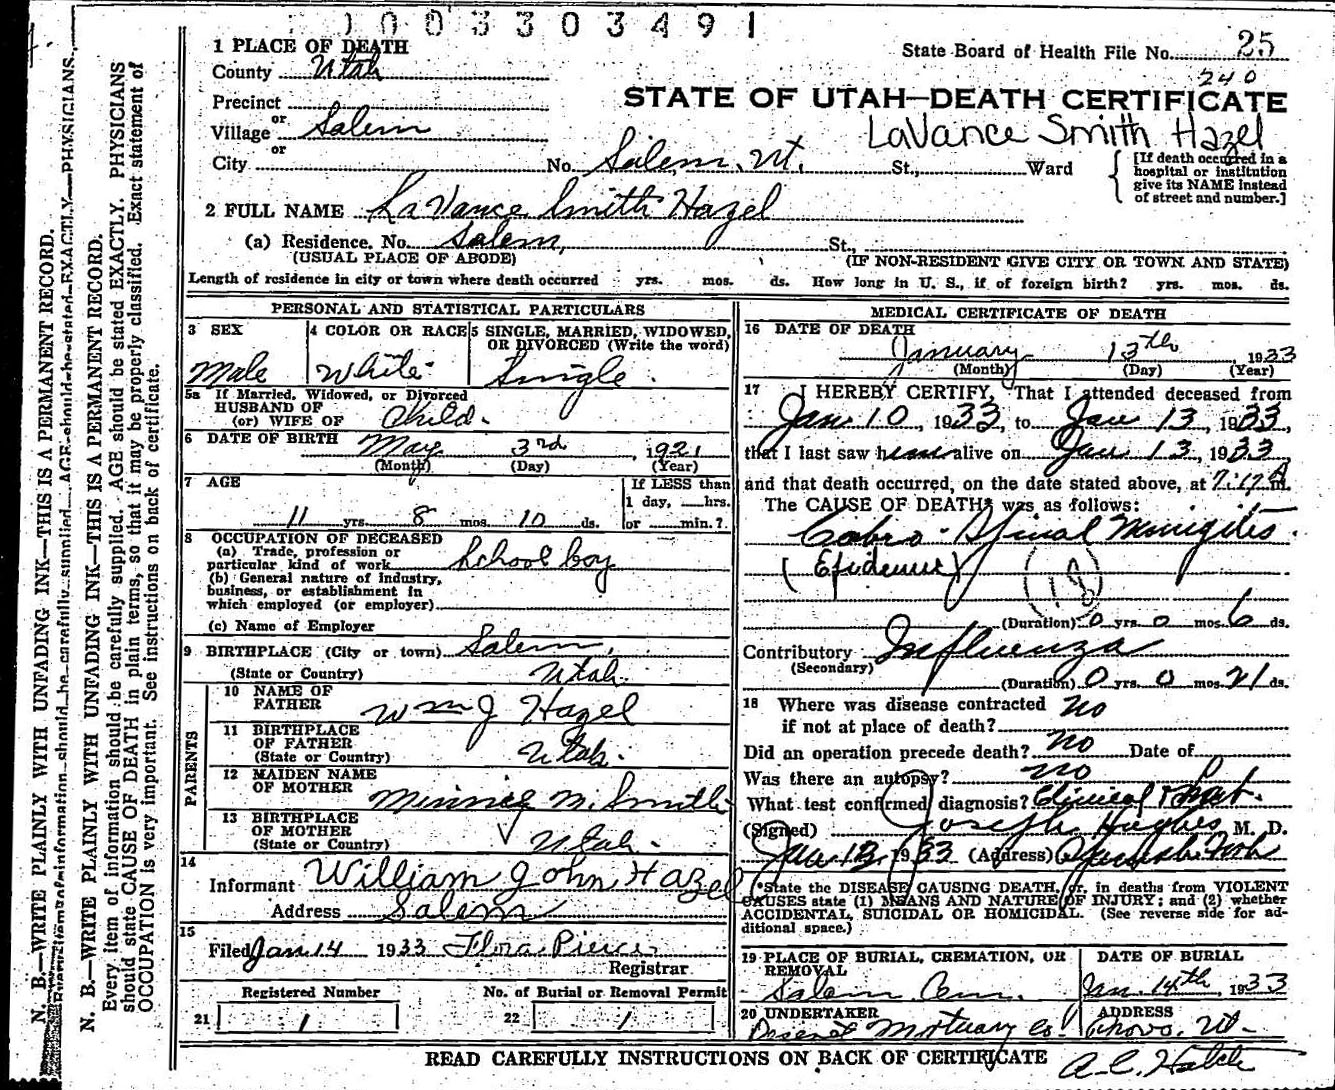 1003303491
State Board of Health File No. 25
240
1 PLACE OF DEATH
County Utah
Precinct
or
Village Salem
or
City No. Salem, Ut. St., Ward
STATE OF UTAH—DEATH CERTIFICATE
LaVance Smith Hazel
[If death occurred in a hospital or institution give its NAME instead of street and number.]
2 FULL NAME LaVance Smith Hazel
(a) Residence. No. Salem, St.,
(USUAL PLACE OF ABODE) (IF NON-RESIDENT GIVE CITY OR TOWN AND STATE)
Length of residence in city or town where death occurred yrs. mos. ds. How long in U. S., if of foreign birth? yrs. mos. ds.
PERSONAL AND STATISTICAL PARTICULARS
3 SEX
Male
4 COLOR OR RACE
White
5 SINGLE, MARRIED, WIDOWED, OR DIVORCED (Write the word)
Single.
5a If Married, Widowed, or Divorced
HUSBAND OF
(or) WIFE OF Child.
6 DATE OF BIRTH May 3rd, 1921
(Month) (Day) (Year)
7 AGE
11 yrs. 8 mos. 10 ds.
If LESS than
1 day, hrs.
or min.?
8 OCCUPATION OF DECEASED
(a) Trade, profession or
particular kind of work School boy
(b) General nature of industry,
business, or establishment in
which employed (or employer)
(c) Name of Employer
9 BIRTHPLACE (City or town) Salem,
(State or Country) Utah.
PARENTS
10 NAME OF
FATHER Wm J Hazel
11 BIRTHPLACE
OF FATHER
(State or Country) Utah.
12 MAIDEN NAME
OF MOTHER Minnie M. Smith
13 BIRTHPLACE
OF MOTHER
(State or Country) Utah.
14
Informant William John Hazel
Address Salem
15
Filed Jan 14 1933 Flora Pierce
Registrar
Registered Number No. of Burial or Removal Permit
21 1 22 1
MEDICAL CERTIFICATE OF DEATH
16 DATE OF DEATH
January 13th 1933
(Month) (Day) (Year)
17 I HEREBY CERTIFY, That I attended deceased from
Jan 10, 1933, to Jan 13, 1933,
that I last saw him alive on Jan 13, 1933
and that death occurred, on the date stated above, at 7:17 A m.
The CAUSE OF DEATH* was as follows:
Cebro-Spinal Menigites
(Epidemic) 18
(Duration) 0 yrs. 0 mos. 6 ds.
Contributory Influenza
(Secondary)
(Duration) 0 yrs. 0 mos. 21 ds.
18 Where was disease contracted
if not at place of death? no
Did an operation precede death? no Date of
Was there an autopsy? no
What test confirmed diagnosis? Clinical
(Signed) Joseph Hughes M. D.
Jan 13, 1933 (Address)
*State the DISEASE CAUSING DEATH, or, in deaths from VIOLENT
CAUSES state (1) MEANS AND NATURE OF INJURY; and (2) whether
ACCIDENTAL, SUICIDAL OR HOMICIDAL. (See reverse side for ad-
ditional space.)
19 PLACE OF BURIAL, CREMATION, OR REMOVAL
Salem Cem.
DATE OF BURIAL
Jan. 14th, 1933
20 UNDERTAKER
Deseret Mortuary Co
ADDRESS
Provo, Ut
READ CAREFULLY INSTRUCTIONS ON BACK OF CERTIFICATE
N. B.—WRITE PLAINLY WITH UNFADING INK—THIS IS A PERMANENT RECORD.
N. B.—WRITE PLAINLY WITH UNFADING INK—THIS IS A PERMANENT RECORD.
Every item of information should be carefully supplied. AGE should be stated EXACTLY. PHYSICIANS
should state CAUSE OF DEATH in plain terms, so that it may be properly classified. Exact statement of
OCCUPATION is very important. See instructions on back of certificate.